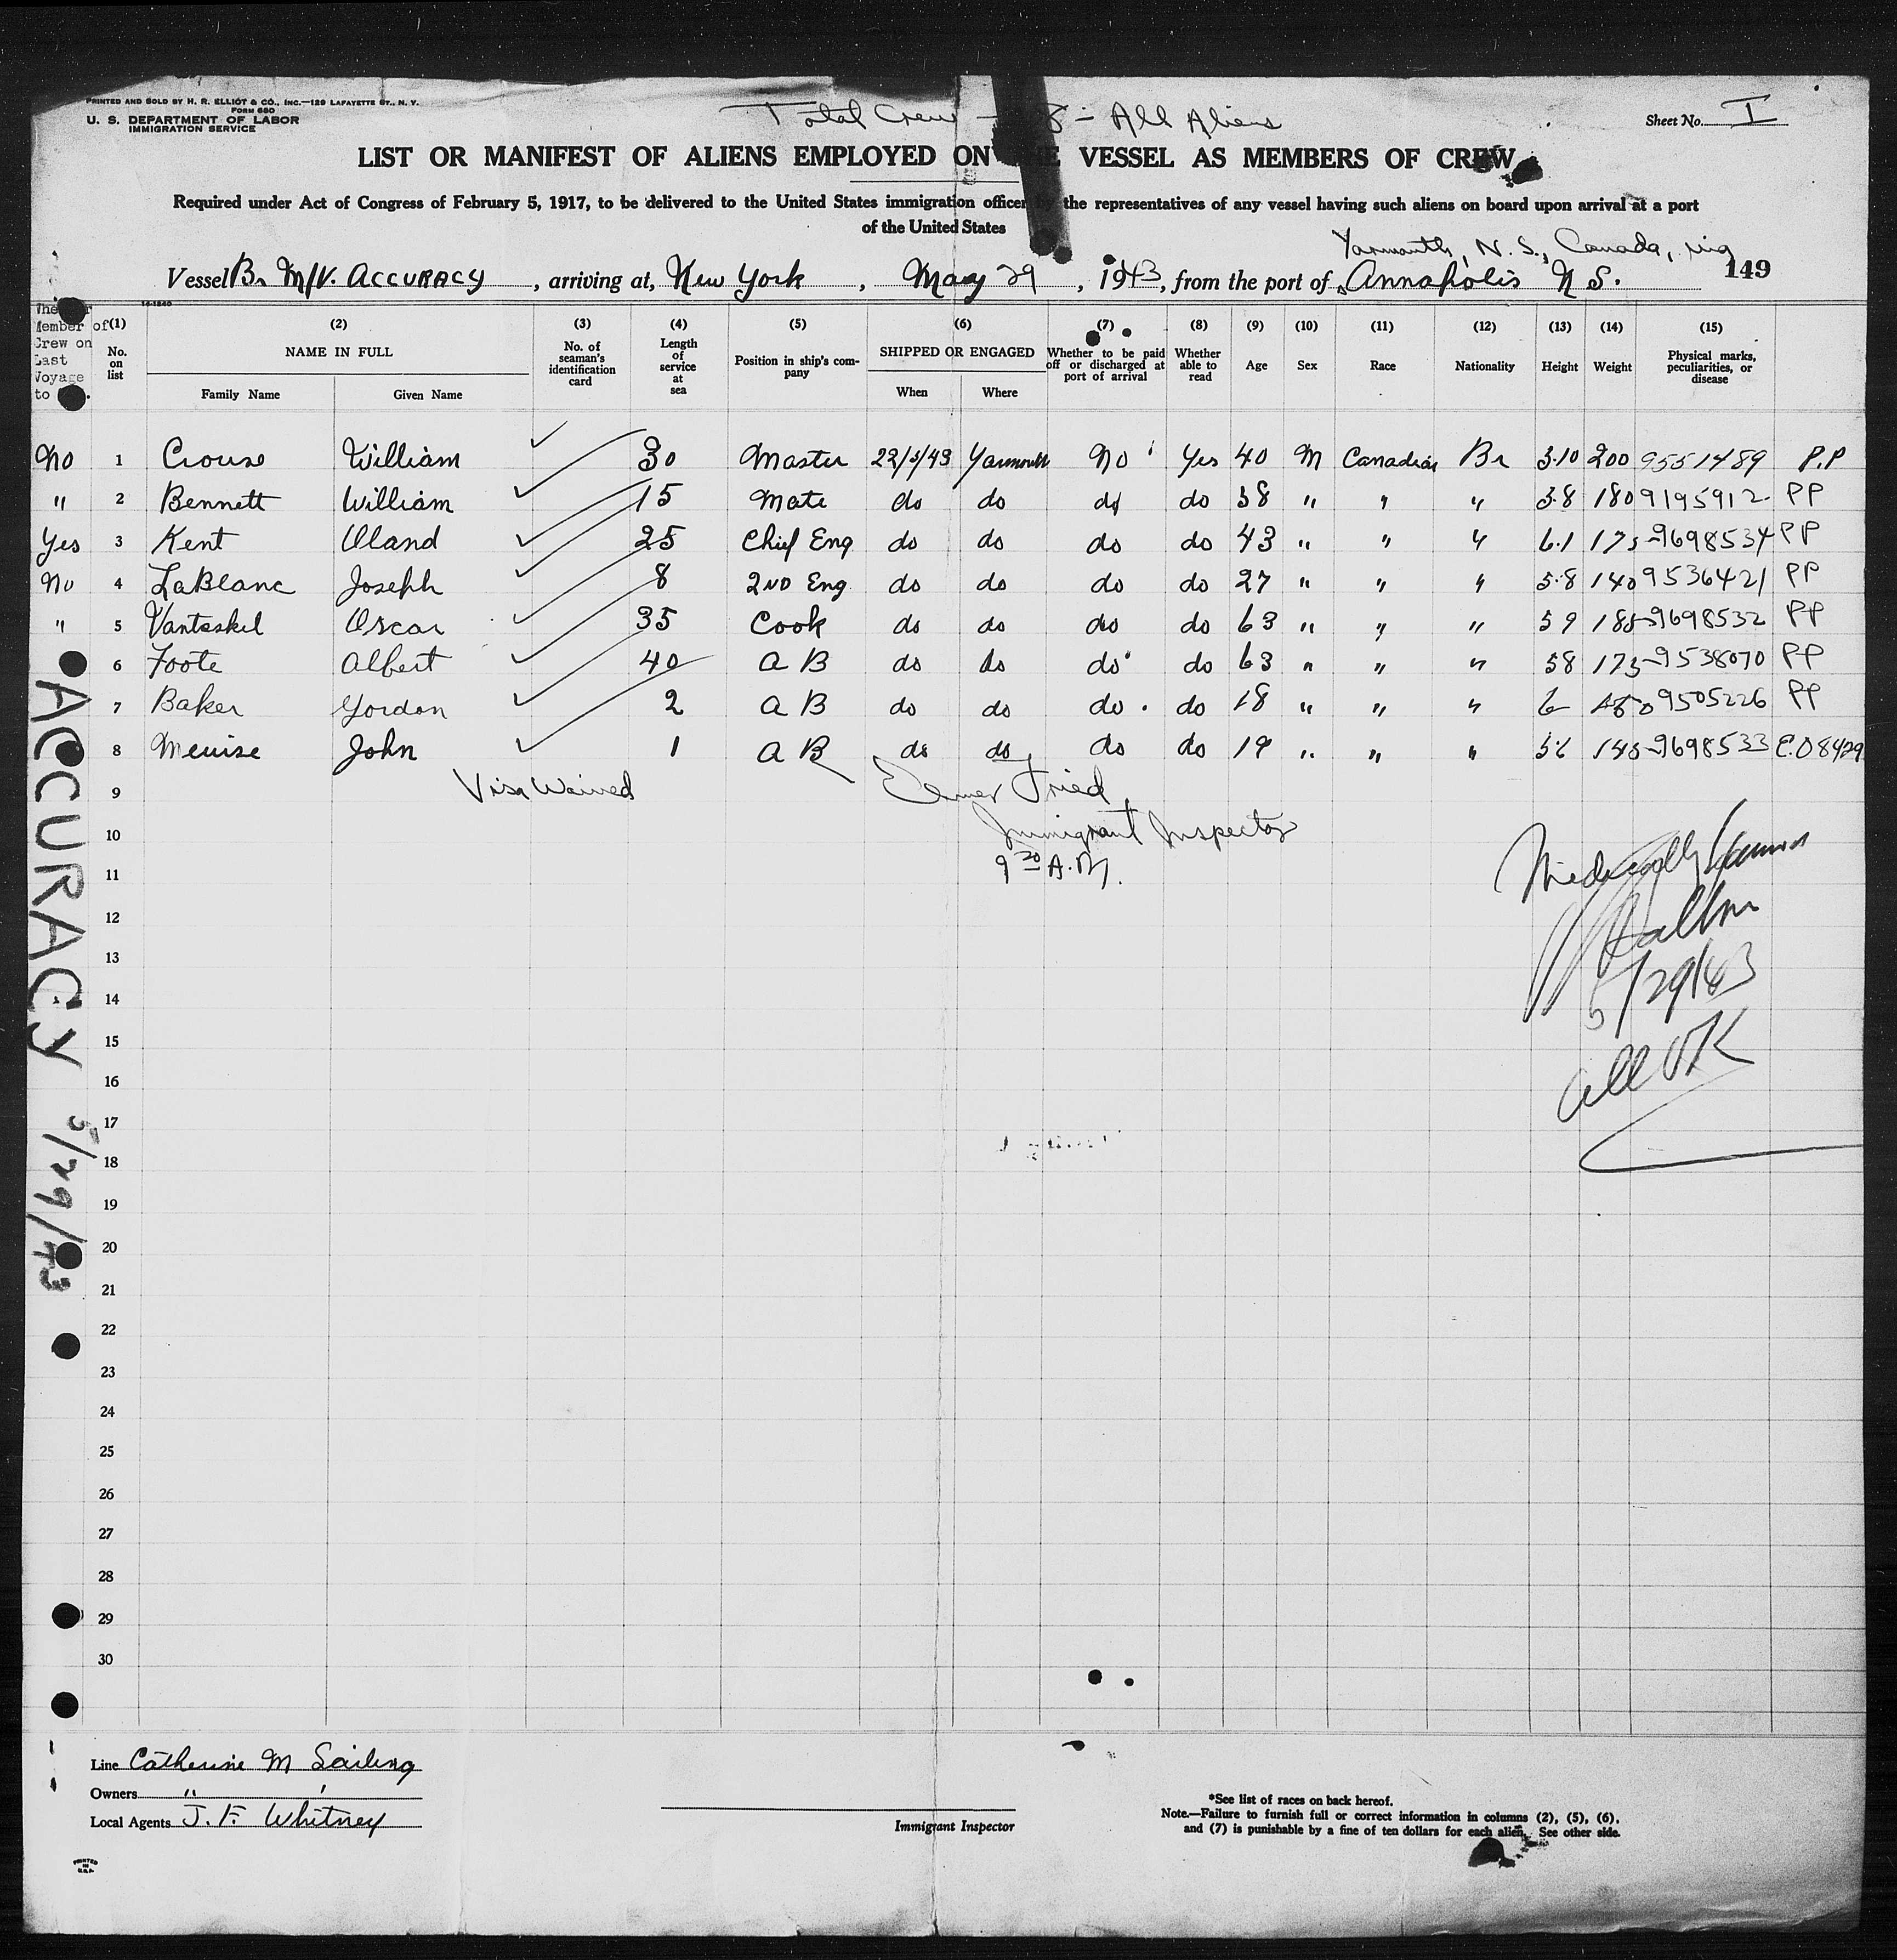 PRINTED AND SOLD BY H. R. ELLIOT & CO., INC.—129 LAFAYETTE ST., N. Y.
FORM 680
U. S. DEPARTMENT OF LABOR
IMMIGRATION SERVICE
Total Crew - 8 - All Aliens
Sheet No. I
LIST OR MANIFEST OF ALIENS EMPLOYED ON VESSEL AS MEMBERS OF CREW
Required under Act of Congress of February 5, 1917, to be delivered to the United States immigration officer the representatives of any vessel having such aliens on board upon arrival at a port
of the United States
Yarmouth, N. S., Canada, via
Vessel Br M/V. ACCURACY, arriving at, New York, May 29, 1943, from the port of Annapolis N S. 149
Whether Member of Crew on Last Voyage to
(1) No. on list
(2) NAME IN FULL Family Name Given Name
(3) No. of seaman's identification card
(4) Length of service at sea
(5) Position in ship's company
(6) SHIPPED OR ENGAGED When Where
(7) Whether to be paid off or discharged at port of arrival
(8) Whether able to read
(9) Age
(10) Sex
(11) Race
(12) Nationality
(13) Height
(14) Weight
(15) Physical marks, peculiarities, or disease
No 1 Crouse William 30 Master 22/5/43 Yarmouth No Yes 40 M Canadian Br 5.10 200 9551489 P.P
" 2 Bennett William 15 Mate do do do do 38 " " " 5.8 180 9195912 PP
Yes 3 Kent Oland 25 Chief Eng do do do do 43 " " " 6.1 175 9698534 PP
No 4 LaBlanc Joseph 8 2ND Eng. do do do do 27 " " " 5.8 140 9536421 PP
" 5 Vantaskel Oscar 35 Cook do do do do 63 " " " 5 9 185 9698532 PP
6 Foote Albert 40 A B do do do do 63 " " " 58 175 9538070 PP
7 Baker Gordon 2 A B do do do do 18 " " " 6 9505226 PP
8 Meuise John 1 A B do do do do 19 " " " 56 145 9698533 C.O 8429
9 Visa Waived Elmer Fried
10 Immigrant Inspector
11 9 30 A.M.
Medically Examined
5/29/43
all OK
12
13
14
15
16
17
18
19
20
21
22
23
24
25
26
27
28
29
30
ACCURACY 5/29/43
Line Catherine M Sailing
Owners " "
Local Agents J. F. Whitney
Immigrant Inspector
*See list of races on back hereof.
Note.—Failure to furnish full or correct information in columns (2), (5), (6),
and (7) is punishable by a fine of ten dollars for each alien. See other side.
PRINTED
IN
U.S.A.